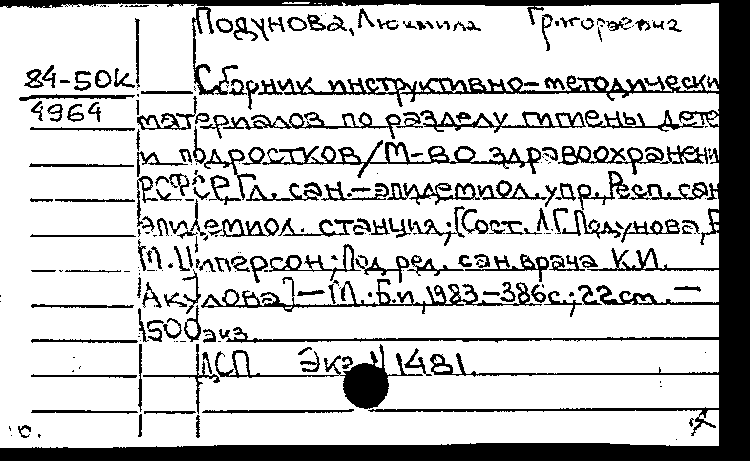 Подунова, Людмила Григорьевна
84-50К
4964
Сборник инструктивно-методически
материалов по разделу гигиены дете
и подростков/М-во здравоохранени
РСФСР, Гл. сан.-эпидемиол. упр., Респ. сан
эпидемиол. станция; [Сост. Л.Г. Подунова, Е
М. Циперсон; Под ред. сан. врача К.И.
Акулова] — М.: Б.и, 1983 – 386с.; 22см. —
1500 экз.
ДСП. Экз. 1481.
ю.